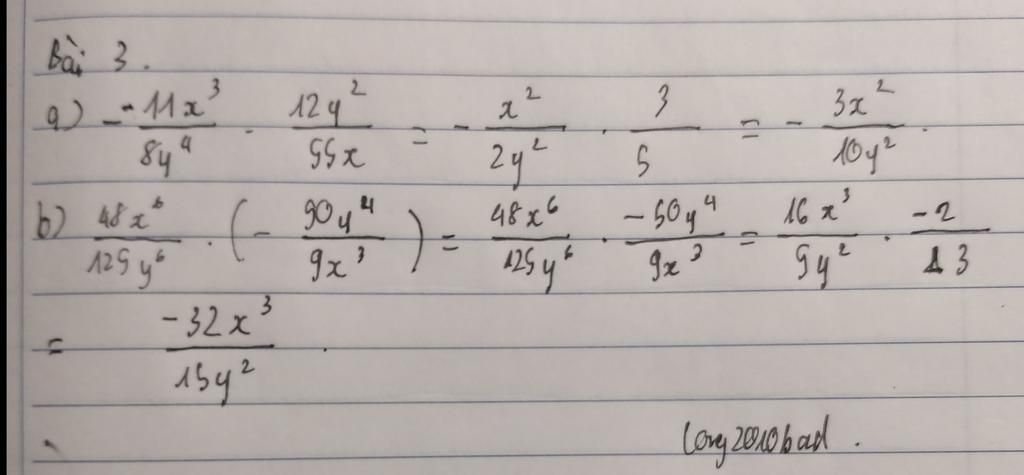 Bài 3.
a) -11x³/8y⁴ · 12y²/55x = - x²/2y² · 3/5 = - 3x²/10y².
b) 48x⁶/125y⁶ · (- 50y⁴/9x³) = 48x⁶/125y⁶ · -50y⁴/9x³ = 16x³/5y² · -2/3
= -32x³/15y².
long2010bad.